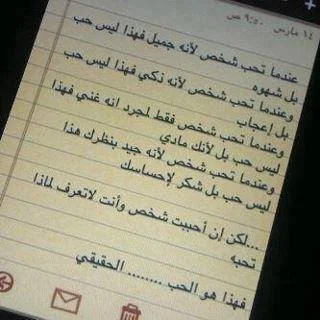 ١٤ مارس ٩:٥٠ ص
عندما تحب شخص لأنه جميل فهذا ليس حب
بل شهوه
وعندما تحب شخص لأنه ذكي فهذا ليس حب
بل إعجاب
وعندما تحب شخص فقط لمجرد انه غني فهذا
ليس حب بل لأنك مادي
وعندما تحب شخص لأنه جيد بنظرك هذا
ليس حب بل شكر لإحساسك
...لكن إن أحببت شخص وأنت لاتعرف لماذا
تحبه
فهذا هو الحب ........ الحقيقي